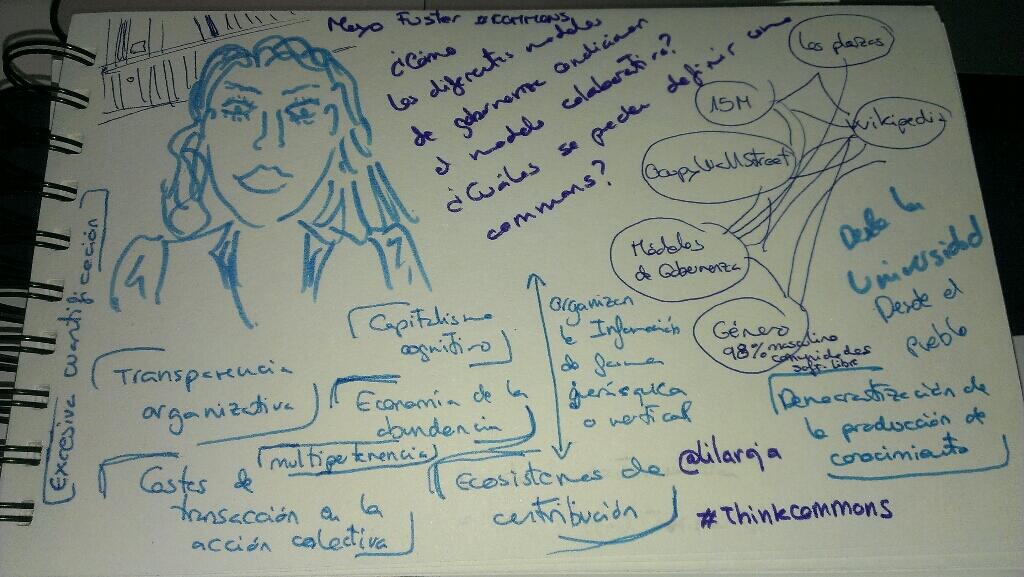 Mayo Fuster #commons
¿Cómo
los diferentes modelos
de gobernanza condicionan
el modelo colaborativo?
¿Cuáles se pueden definir como
commons?
Las plazas
15M
Wikipedia
OccupyWallStreet
Módelos
de Gobernanza
Género
98% masculino
comunidades
soft. libre
Desde la
Universidad
Desde el
pueblo
Excesiva cuantificación
Capitalismo
cognitivo
Transparencia
organizativa
Economía de la
abundancia
multipertenencia
Costes de
transacción en la
acción colectiva
Ecosistemas de
contribución
organizan
la Información
de forma
jerárquica
o vertical
Democratización de
la producción de
conocimiento
@dilargia
#Thinkcommons